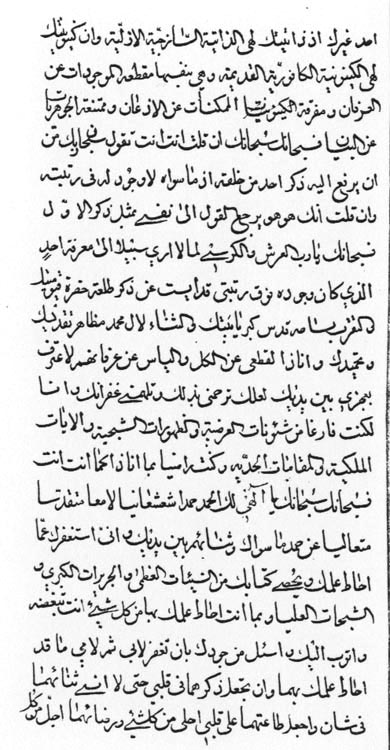 احد غيرك اذ ذاتيتك لهي الذاتية السازجية الازلية وان كينونيتك
لهي الكينونية الكافورية القديمة وهي بنفسها مقطعة الموجودات عن
العرفان و مفرقة الكينونيات الممكنات عن الاذعان وممتنعة الجوهريات
عن البيان فسبحانك سبحانك ان قلت انت انت تقول من
ان يرفع اليه ذكر احد من خلقه اذ ما سواه لا وجود له في رتبته
وان قلت انك هو هو يرجع القول الى نفسي بمثل ذكر الاول
فسبحانك يا رب العرش والكرسي لما لا ارى سبيلا الى معرفة احد
الذي كان وجوده فوق رتبتي قد ايست عن ذكر طلعة حضرة
في قدس كبريائيتك في الثناء لال محمد مظاهر تقديسك
وتمجيدك وانا ذا لقطعي عن الكل والياس عن عرفانهم لاعترف
بعجزي بين يديك لعلك ترحمني بذلك وتلهمني غفرانك وانا
لكنت فارغا من شئونات العرضية وظهورات الشبحية والايات
الملكية في المقامات الحدية وكنت راضيا بما انا ذا كما انت انت
فسبحانك سبحانك يا الهي لك الحمد حمدا شعشعانيا لامعا متقدسا
متعاليا عن حمد ما سواك وثنائهم بين يديك وانى استغفرك عما
احاط علمك ويحصي كتابك من السيئات العظمى والجريرات الكبرى و
الشبحات العليا وبما انت احاط علمك بها من كل شيئ انت تبغضه
واتوب اليك واسئل من جودك بان تغفر لابي ثم لامي ما قد
احاط علمك بهما وان تجعل ذكرهما في قلبي حتى لا انسي ثنائهما
في شان واجعل طاعتهما على قلبي احلى من كل شيئ ورضائهما اجل من كل